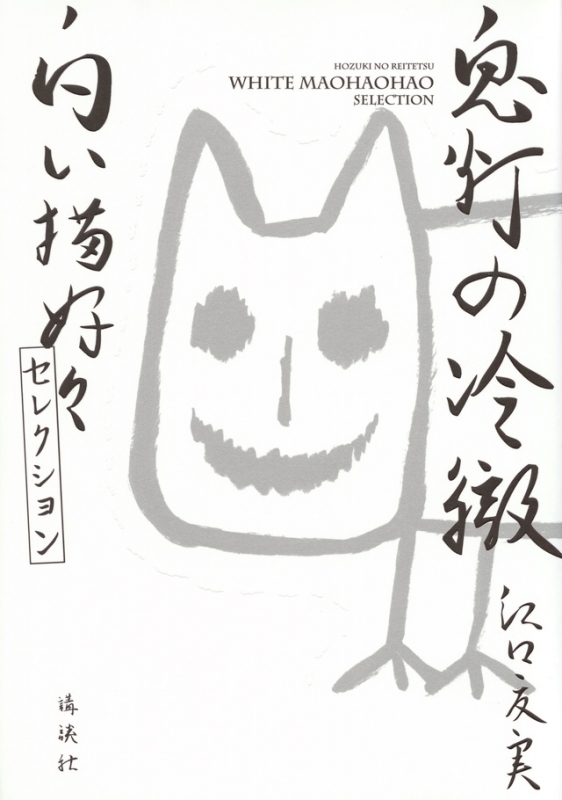 鬼灯の冷徹
江口夏実
HOZUKI NO REITETSU
WHITE MAOHAOHAO
SELECTION
白い描好々
セレクション
講談社